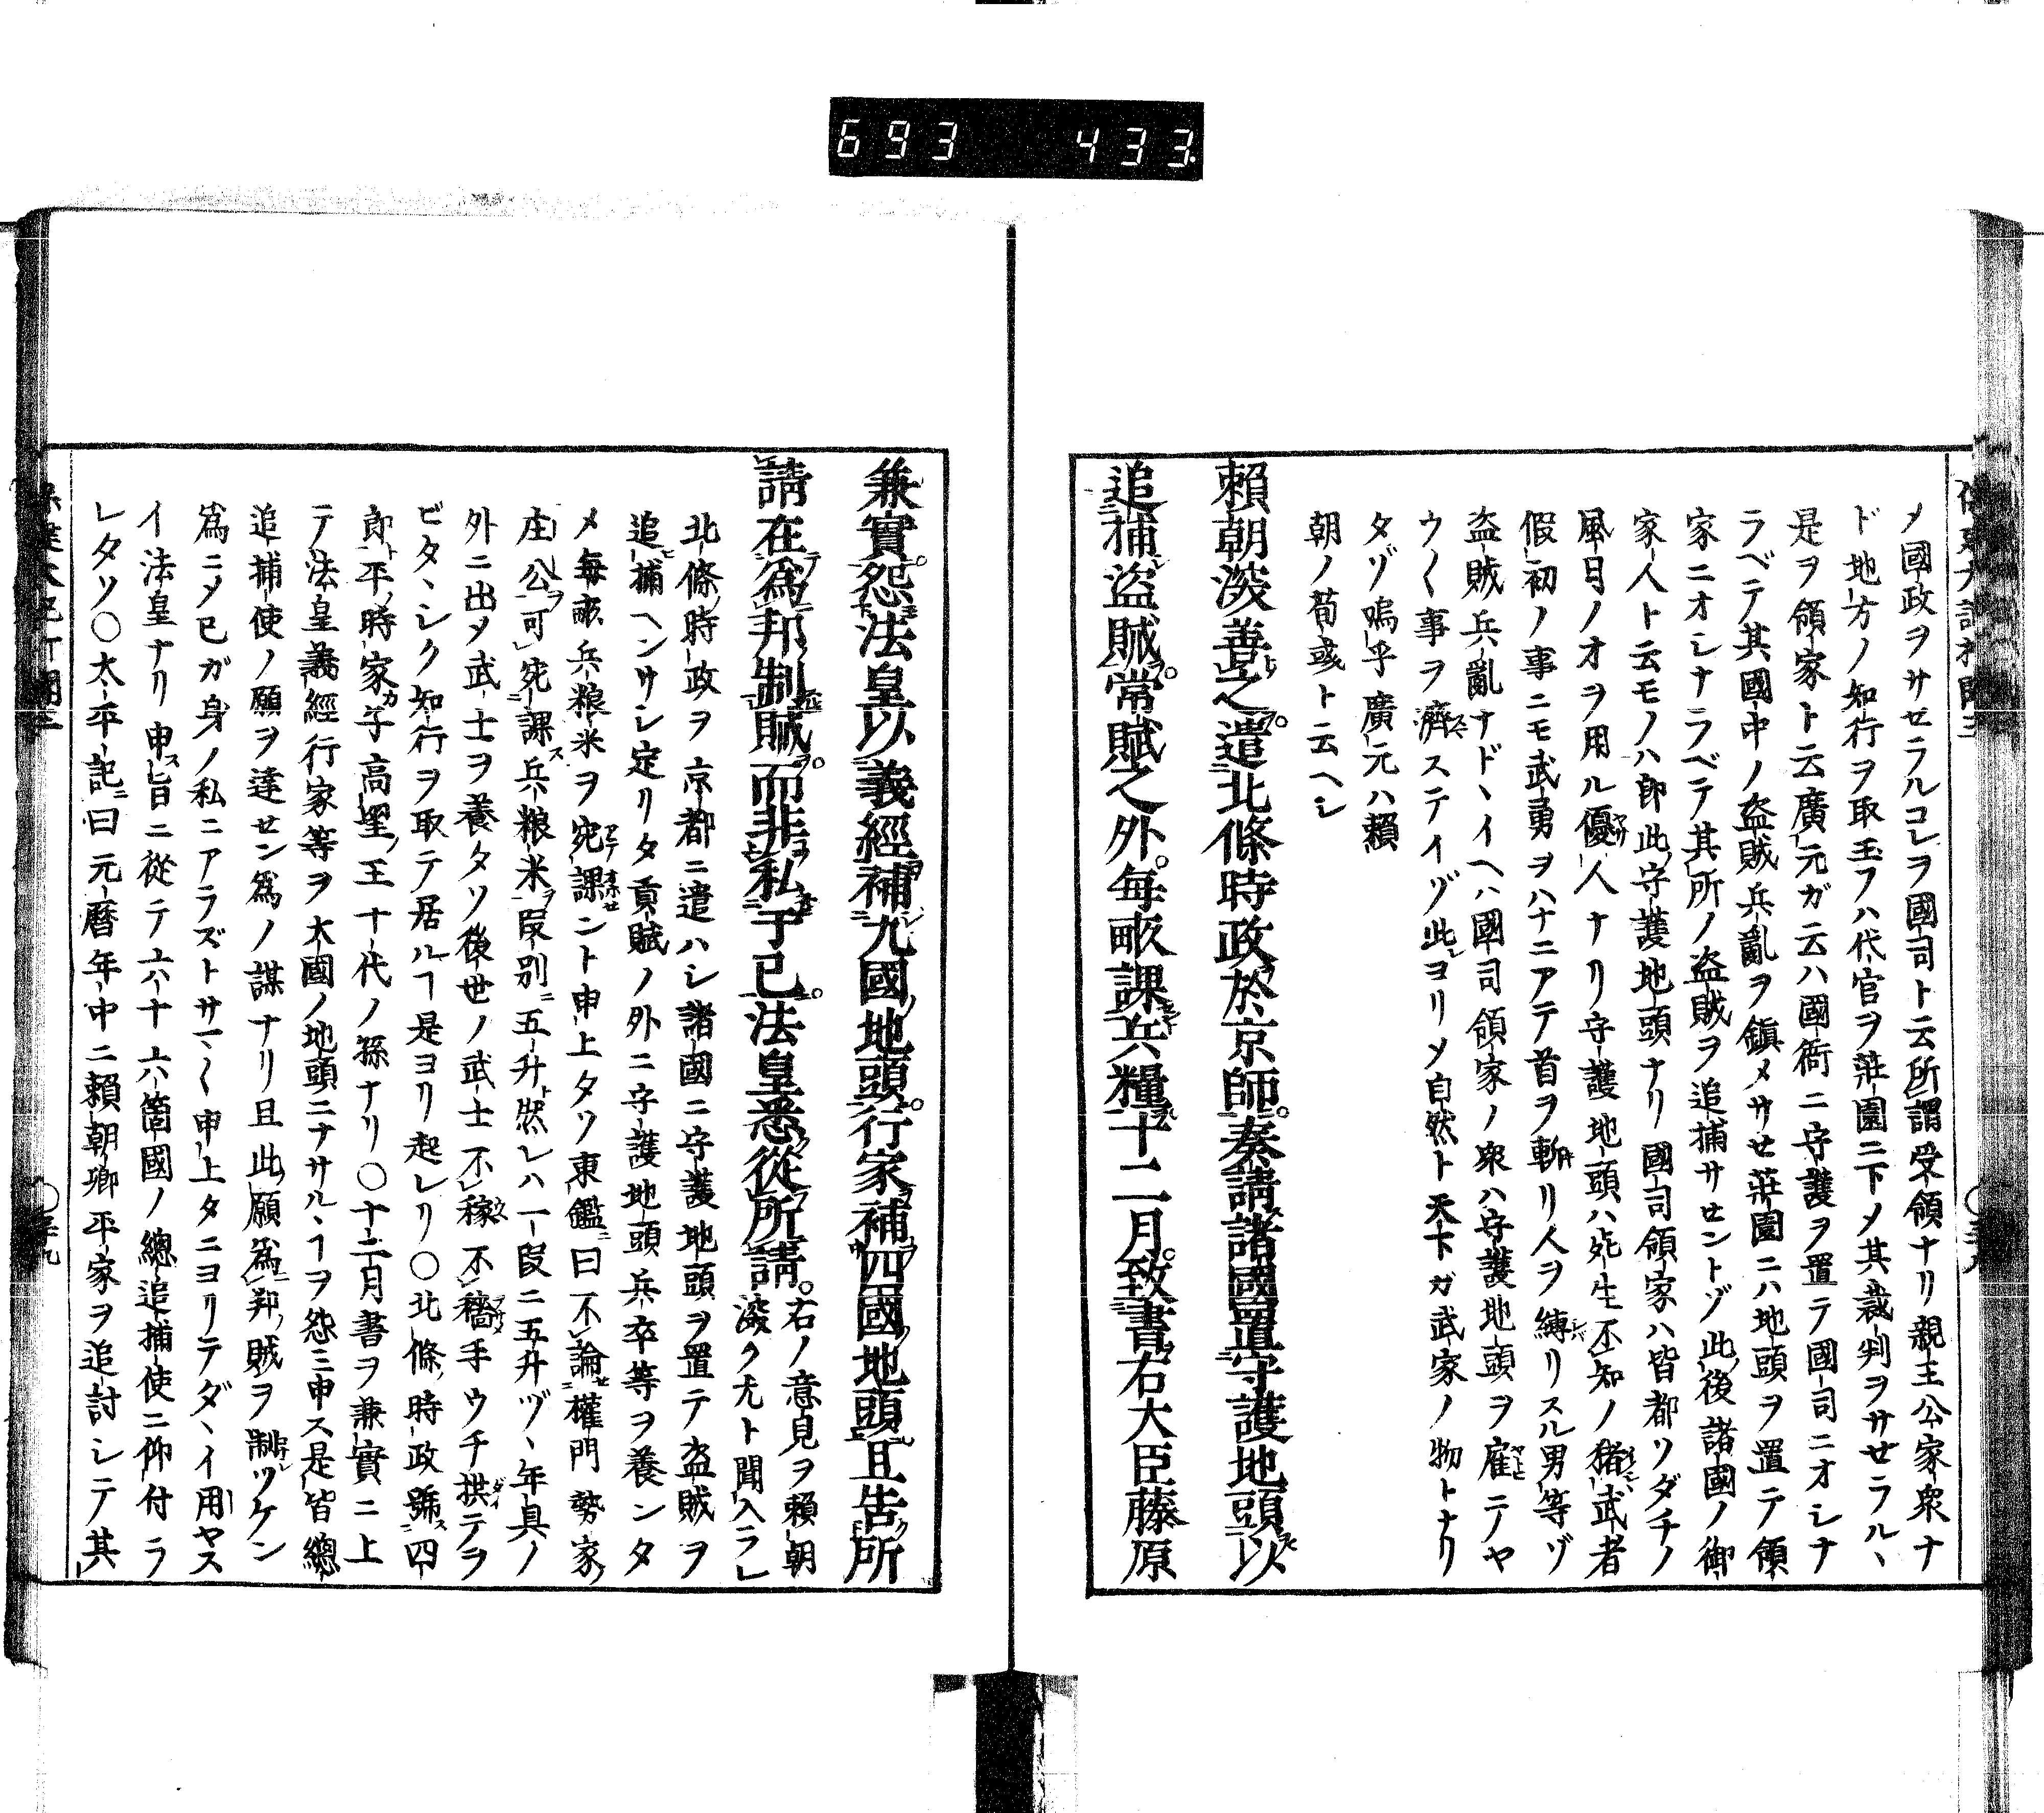 693 433
ノ國政ヲサセラルコレヲ國司ト云所謂受領ナリ親王公家衆ナ
ド地方ノ知行ヲ取玉フハ代官ヲ莊園ニ下メ其裁判ヲサセラル、
是ヲ領家ト云廣元ガ云ハ國衙ニ守護ヲ置テ國司ニオシナ
ラベテ其國中ノ盗賊兵亂ヲ鎭メサせ莊園ニハ地頭ヲ置テ領
家ニオシナラベテ其所ノ盗賊ヲ追捕サセントゾ此後諸國ノ御
家人ト云モノハ即此守護地頭ナリ國司領家ハ皆都ソダチノ
風月ノオヲ用ル優人ナリ守護地頭ハ死生不知ノ猪武者
假初ノ事ニモ武勇ヲハナニアテ首ヲ斬リ人ヲ縛リスル男等ゾ
盗賊兵亂ナド、イヘハ國司領家ノ衆ハ守護地頭ヲ雇テヤ
ウ〱事ヲ濟ステイゾ此ヨリメ自然ト天下ガ武家ノ物トナリ
タゾ嗚乎廣元ハ賴
朝ノ荀彧ト云ヘシ
賴朝深善之遣北條時政於京師奏請諸國置守護地頭以
追捕盗賊常賦之外每畝課兵糧十二月致書右大臣藤原
兼實怨法皇以義經補九國地頭行家補四國地頭且告所
請在爲邦制賊而非私于己法皇悉從所請
右ノ意見ヲ賴朝
深ク尤ト聞入ラレ
北條時政ヲ京都ニ遣ハシ諸國ニ守護地頭ヲ置テ盗賊ヲ
追捕ヘンサレ定リタ貢賦ノ外ニ守護地頭兵卒等ヲ養ンタ
メ每畝兵粮米ヲ宛課ント申上タソ東鑑曰不論權門勢家
庄公可宛課兵粮米段別五升然レハ一段ニ五升ヅ、年具ノ
外ニ出メ武士ヲ養タソ後世ノ武士不稼不穡手ウチ拱テヲ
ビタ、シク知行ヲ取テ居ルヿ是ヨリ起レリ○北條時政號四
郎平時家子高望王十代ノ孫ナリ○十二月書ヲ兼實ニ上
テ法皇義經行家等ヲ大國ノ地頭ニナサル、ヿヲ怨ミ申ス是皆總
追捕使ノ願ヲ達せン爲ノ謀ナリ且此願爲邦賊ヲ制ツケン
爲ニメ已ガ身ノ私ニアラズトサマ〱申上タニヨリテダ、イ用ヤス
イ法皇ナリ申旨ニ從テ六十六箇國ノ總追捕使ニ仰付ラ
レタソ○太平記曰元暦年中ニ賴朝卿平家ヲ追討シテ其